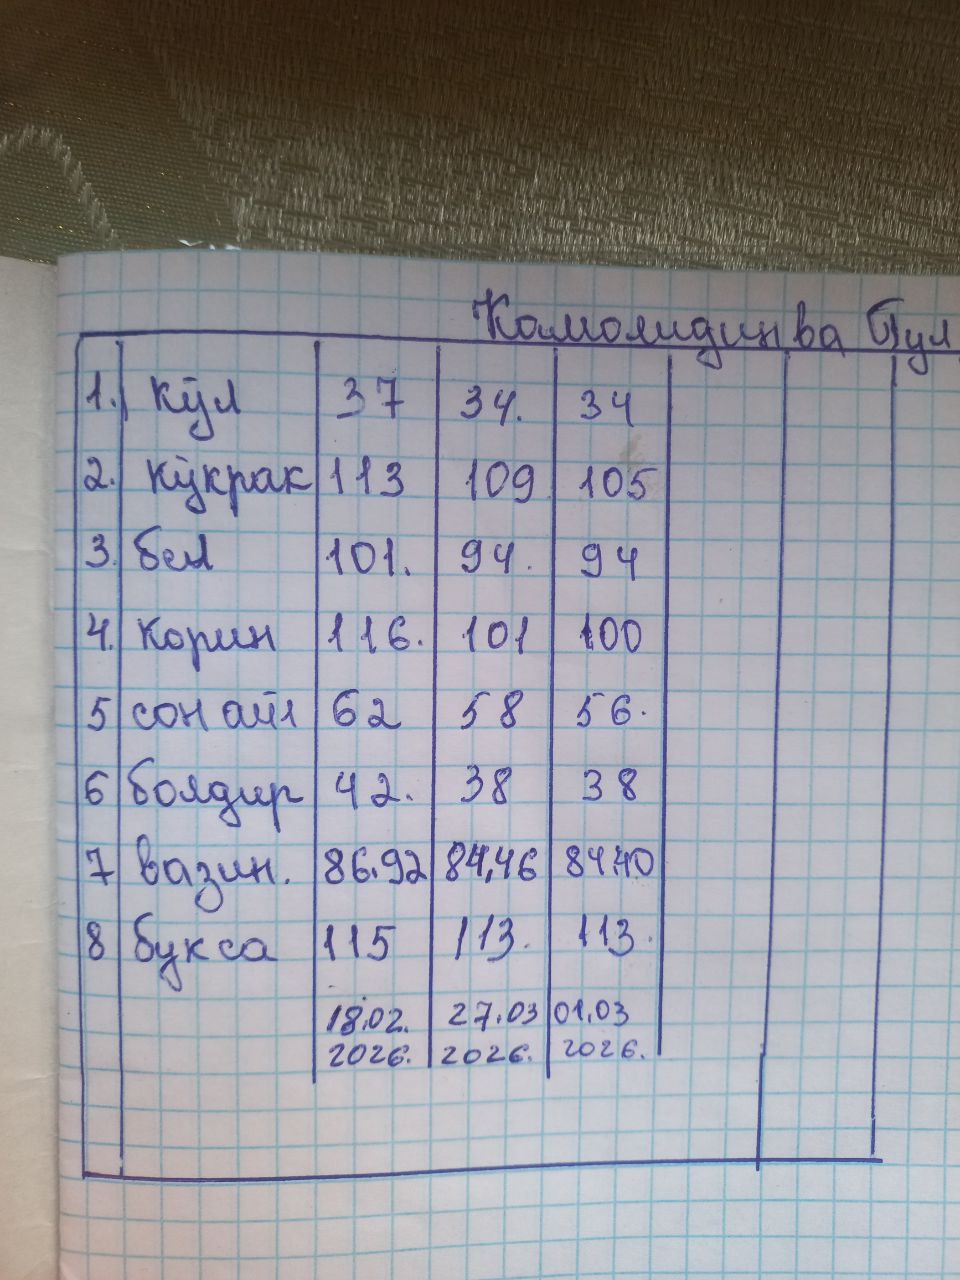 Камолидин ва Гул
1. Кўл 37 34. 34
2. Кўкрак 113 109 105
3. бел 101. 94. 94
4. Корин 116. 101 100
5 сон айл 62 58 56.
6 болдир 42. 38 38
7 вазин. 86.92 84,46 84.40
8 букса 115 113. 113.
18.02. 27.03 01.03
2026. 2026. 2026.